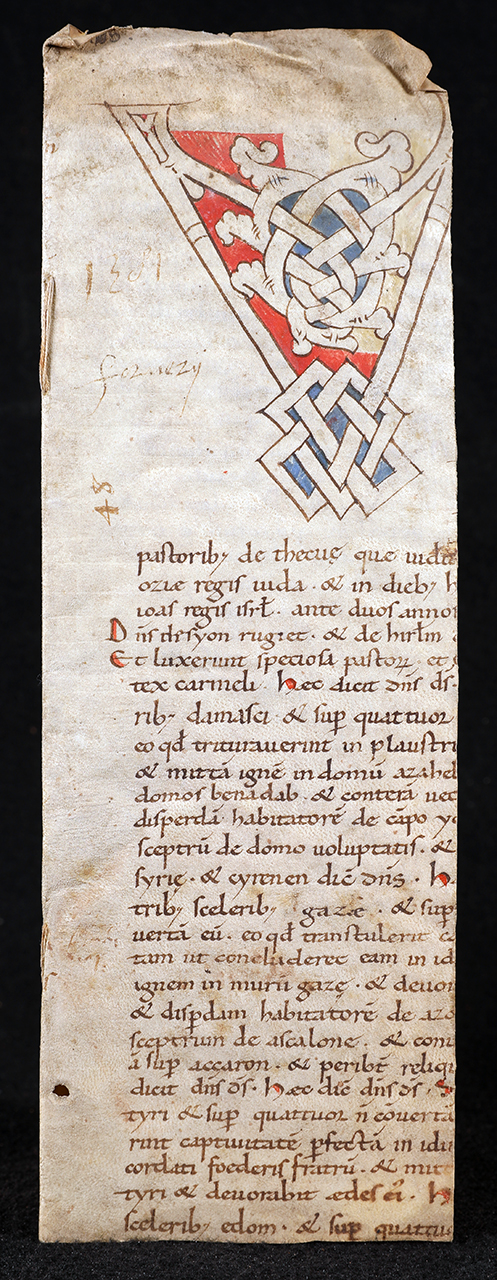 V
1581
48
pastorib; de thecuę que uidit
oziæ regis iuda · & in dieb; h
ioas regis isrl̄ · ante duos annos
Dn̄s de syon rugiet · & de hirl̄m
Et luxerunt speciosa pastoꝝ et
tex carmeli · hęc dicit dn̄s · ds̄ ·
rib; damasci · & sup̄ quattuor
eo qd̄ triturauerint in plaustri
& mittā ignē in domū azahel
domos benadab · & conterā uec
disperdā habitatorē de cāpo
sceptrū de domo uoluptatis · &
syrię · & cyrenen dic̄ dn̄s · h
trib; sceleribꝫ gazæ · & sup
uertā eū · eo qd̄ transtulerit
tam ut concluderet eam in id
ignem in murū gazę · & deuor
& disp̄dam habitatorē de azo
sceptrum de ascalone · & conu
ā sup̄ accaron · & peribt̄ reliqui
dicit dn̄s ds̄ · hæc dic̄ dn̄s ds̄ ·
tyri & sup̄ quattuor n̄ cōuertā
rint captiuitatē p̄fectā in idu
cordati foederis fratrū · & mitt
tyri & deuorabit ædes ei᷒ · h
sceleribꝫ edom · & sup̄ quattuo